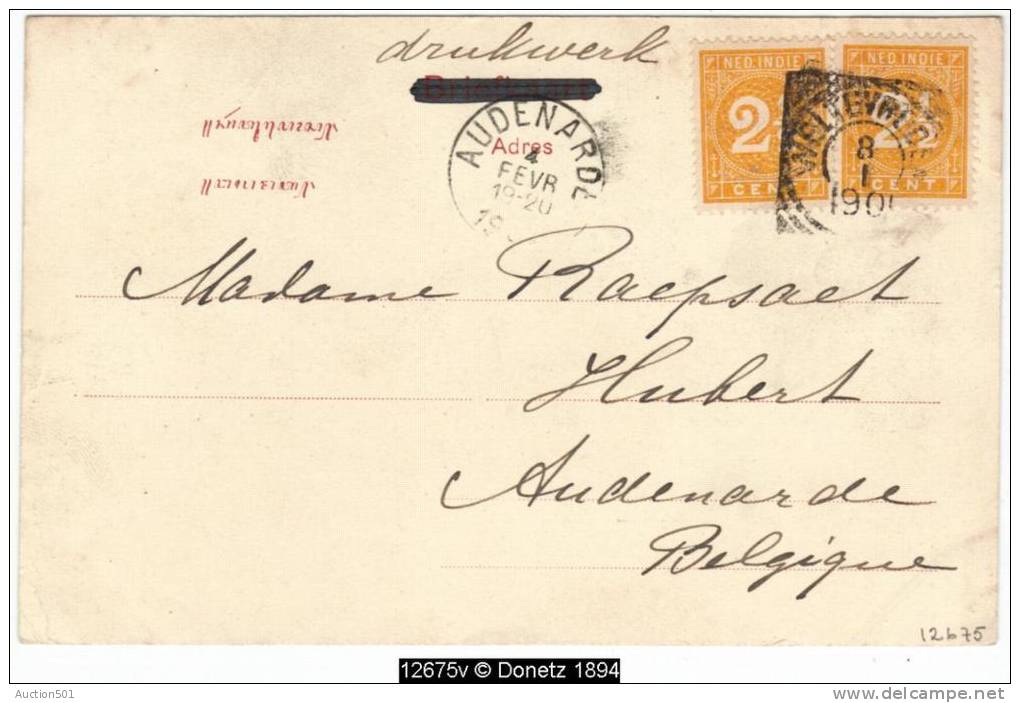 drukwerk
Adres
AUDENARDE
4
FEVR
19-20
19
NED. INDIE
2½
CENT
NED. INDIE
2½
CENT
WELTEVREDEN
8
1
190
Madame Raepsaet
Hubert
Audenarde
Belgique
12675
12675v © Donetz 1894
Auction501
delcampe.net